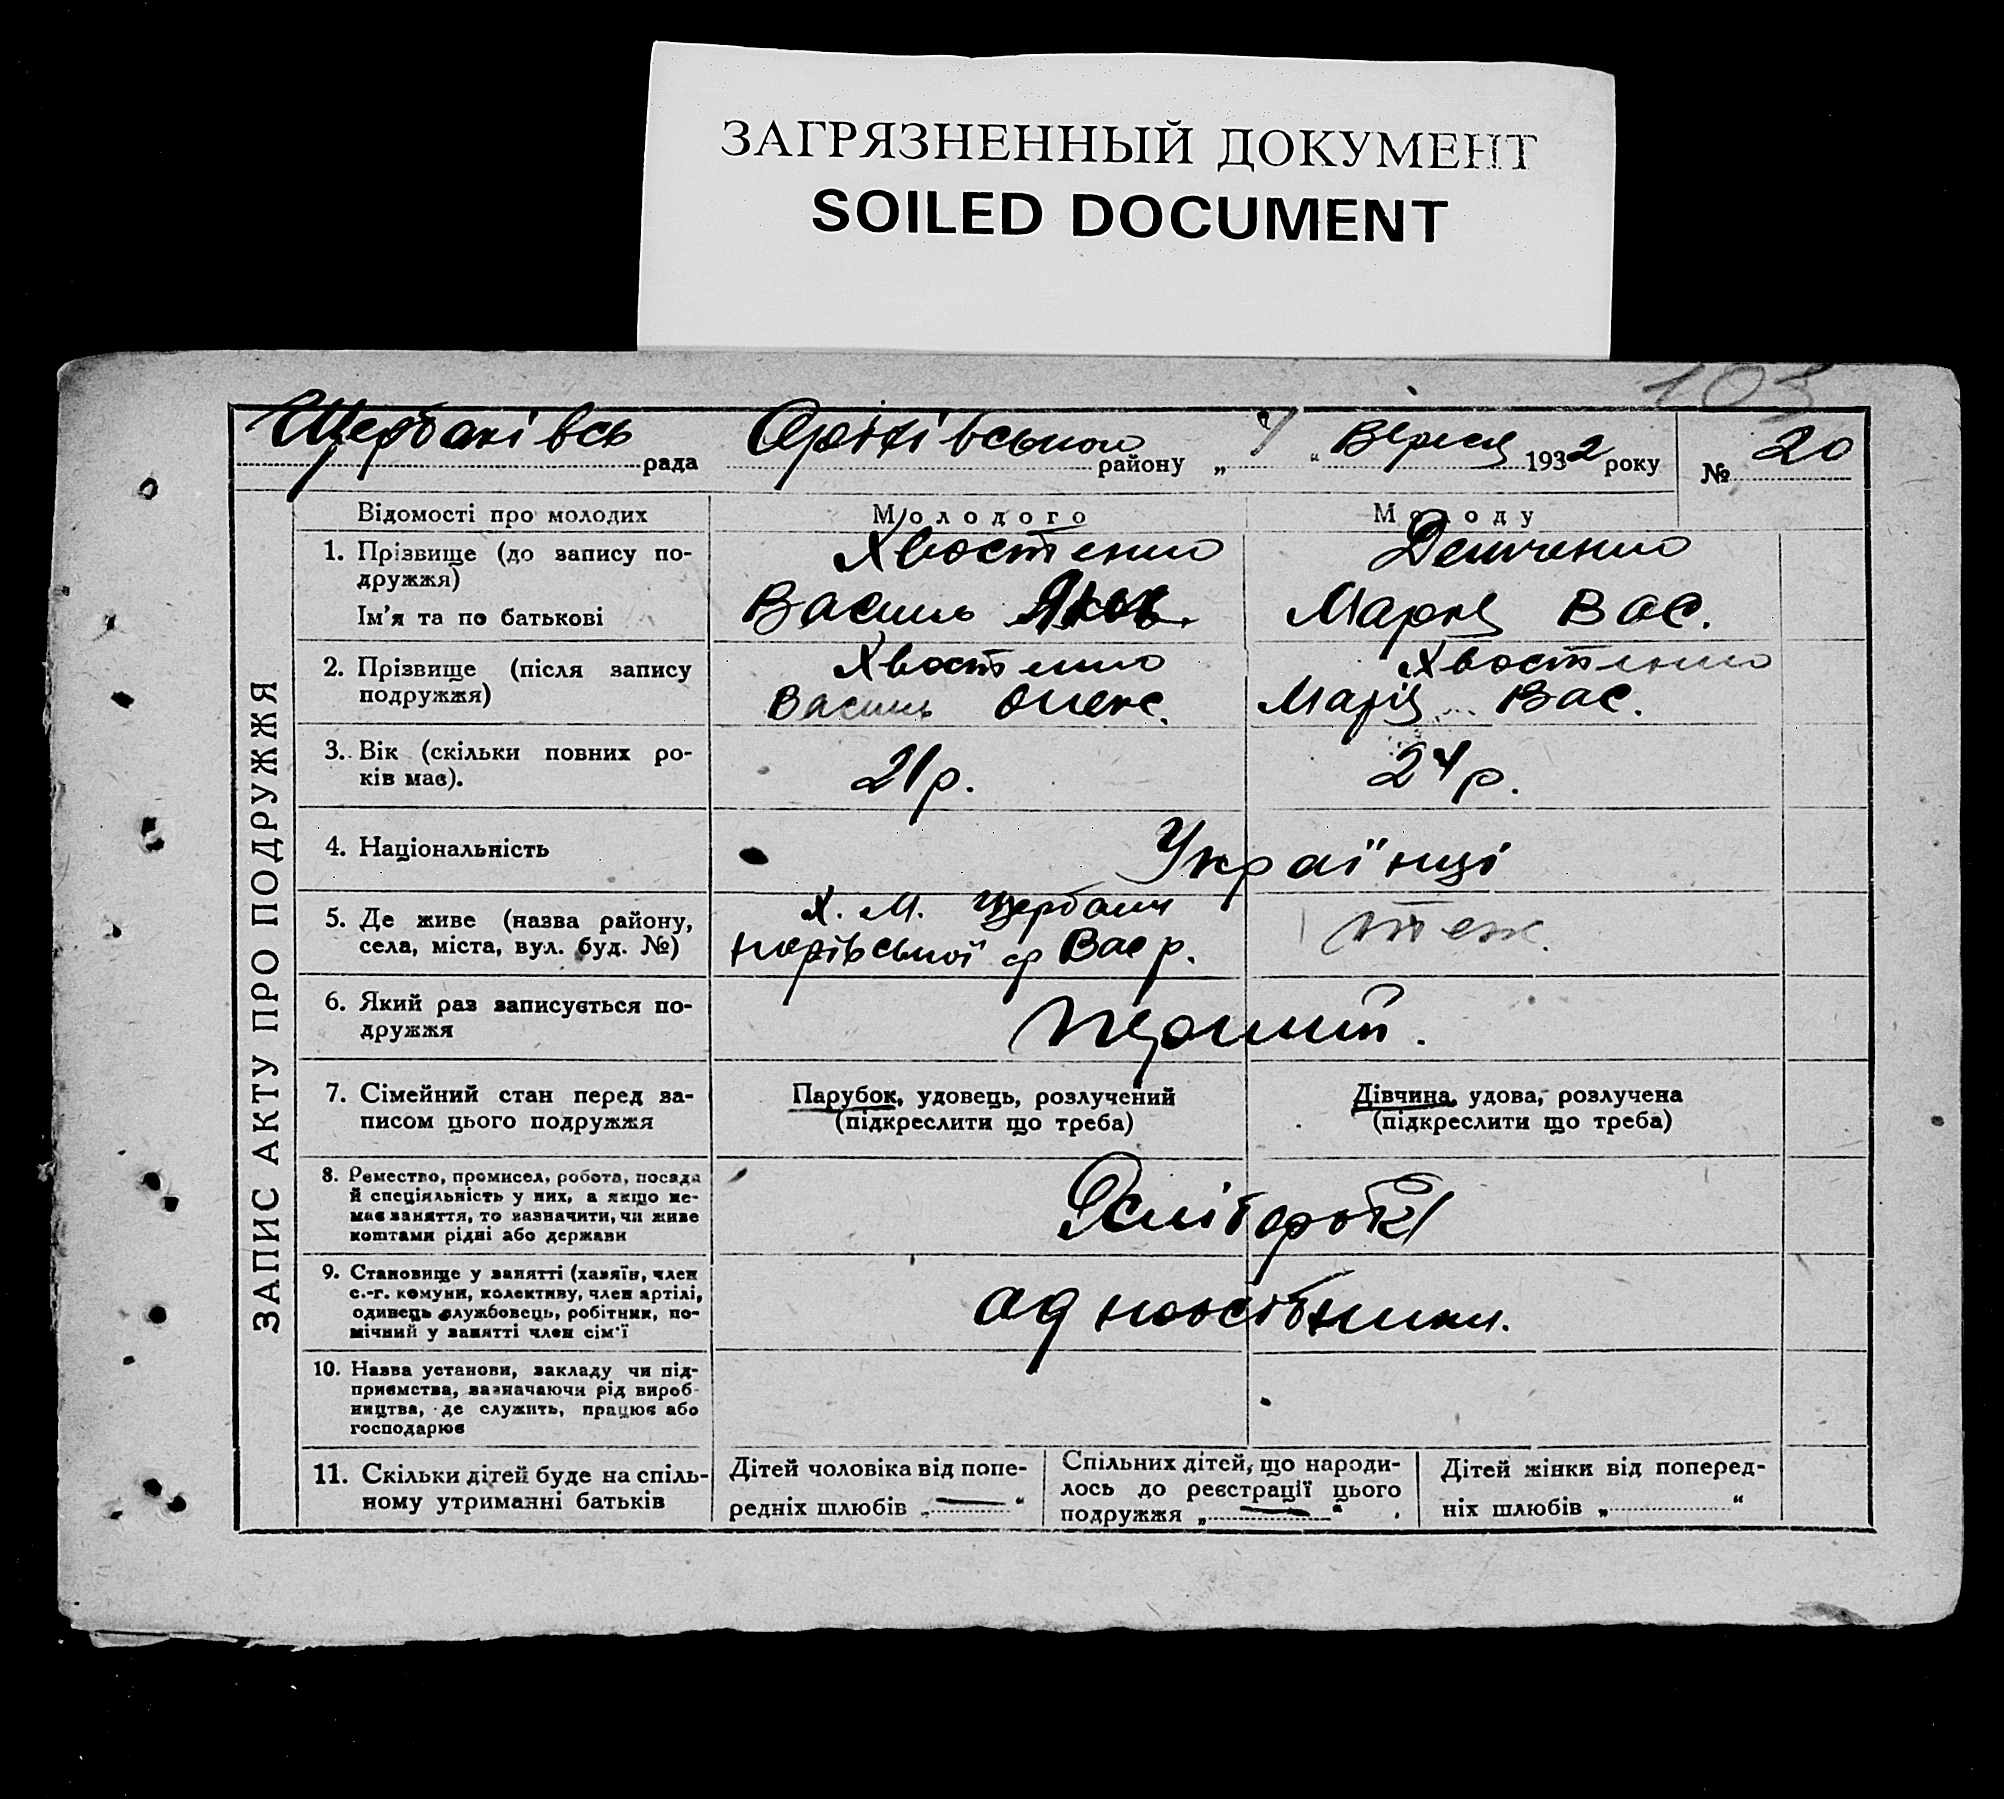 ЗАГРЯЗНЕННЫЙ ДОКУМЕНТ
SOILED DOCUMENT
103
Щербаківсь рада Оріхівського району „ 7 “ Вересня 1932 року № 20
ЗАПИС АКТУ ПРО ПОДРУЖЖЯ
Відомості про молодих Молодого Молоду
1. Прізвище (до запису по-
дружжя)
Хвостенко Демченко
Ім'я та по батькові Василь Яков. Марія Вас.
2. Прізвище (після запису
подружжя)
Хвостенко Хвостенко
Василь Олекс. Марія Вас.
3. Вік (скільки повних ро-
ків має).
21 р. 24 р.
4. Національність Українці
5. Де живе (назва району,
села, міста, вул. буд. №)
Х. М. Щербаки
теж.
Вас р.
6. Який раз записується по-
дружжя
перший.
7. Сімейний стан перед за-
писом цього подружжя
Парубок, удовець, розлучений
(підкреслити що треба)
Дівчина, удова, розлучена
(підкреслити що треба)
8. Ремество, промисел, робота, посада
й спеціяльність у них, а якщо не-
має заняття, то зазначити, чи живе
коштами рідні або держави
Хліборобы
9. Становище у занятті (хазяїн, член
с.-г. комуни, колективу, член артілі,
одинець службовець, робітник, по-
мічний у занятті член сім'ї
одноосібники.
10. Назва установи, закладу чи під-
приємства, зазначаючи рід вироб-
ництва, де служить, працює або
господарює
11. Скільки дітей буде на спіль-
ному утриманні батьків
Дітей чоловіка від попе-
редніх шлюбів „ — “
Спільних дітей, що народи-
лось до реєстрації цього
подружжя „ — “
Дітей жінки від поперед-
ніх шлюбів „ “